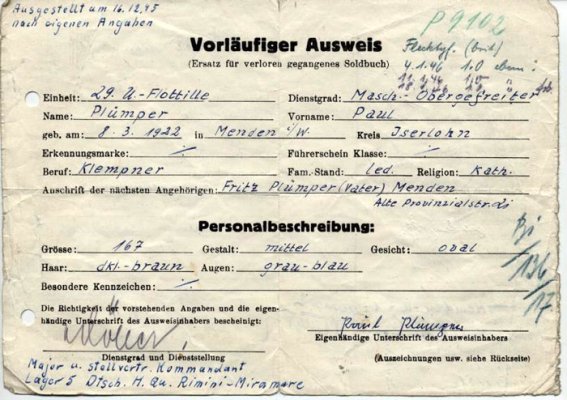 Ausgestellt am 16.12.45
nach eigenen Angaben
P9102
Vorläufiger Ausweis
(Ersatz für verloren gegangenes Soldbuch)
Fleckty. (brit)
4.1.46 1.0 ebem:
11.1.46 1,0 "
18.1.46
Einheit: 29. U.-Flottille Dienstgrad: Masch.-Obergefreiter
Name: Plümper Vorname: Paul
geb. am: 8.3.1922 in Menden i/W. Kreis Iserlohn
Erkennungsmarke: ·/· Führerschein Klasse: ·/·
Beruf: Klempner Fam.-Stand: led. Religion: Kath.
Anschrift der nächsten Angehörigen: Fritz Plümper (Vater) Menden
Alte Provinzialstr.
Personalbeschreibung:
Grösse: 167 Gestalt: mittel Gesicht: oval
Haar: dkl-braun Augen: grau-blau
Besondere Kennzeichen: ·/·
136
17
Die Richtigkeit der vorstehenden Angaben und die eigen-
händige Unterschrift des Ausweisinhabers bescheinigt:
Paul Plümper
Eigenhändige Unterschrift des Ausweisinhabers
Dienstgrad und Dienststellung
(Auszeichnungen usw. siehe Rückseite)
Major u. stellvertr. Kommandant
Lager 5 Dtsch. H. Qu. Rimini-Miramare